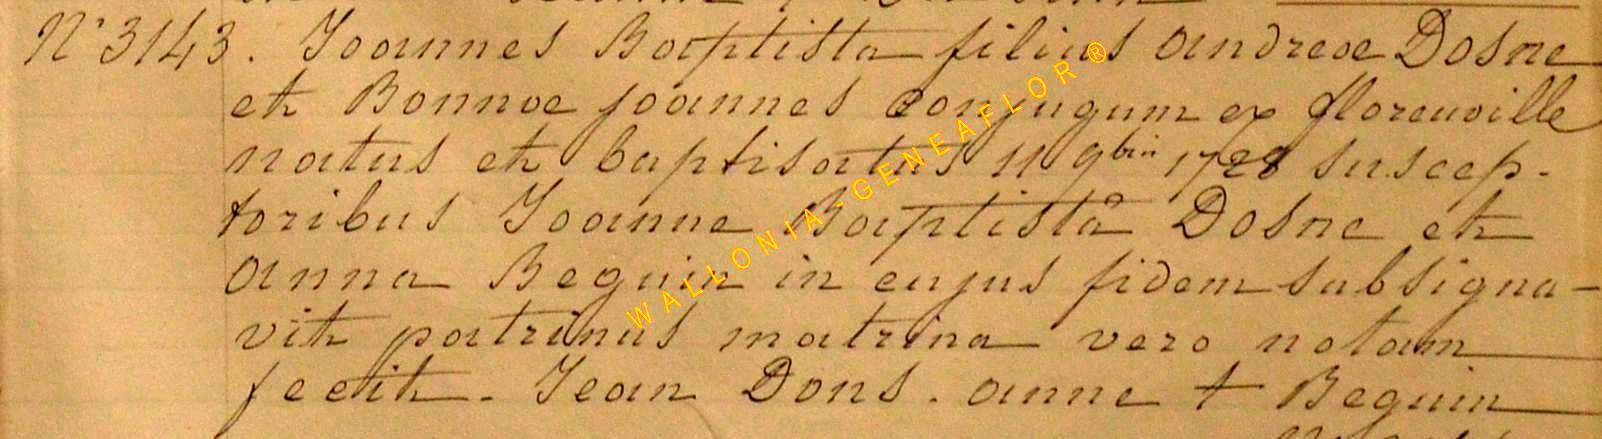 N° 3143. Joannes Baptista filius andreae Dosne
et Bonnae joannes conjugum ex florenville
natus et baptisatus 11 9bris 1728 suscep-
toribus Joanne Baptista Dosne et
anna Beguin in cujus fidem subsigna-
vit patrinus matrina vero notam
fecit. Jean Dons. anne + Beguin
WALLONIA-GENEAFLOR®